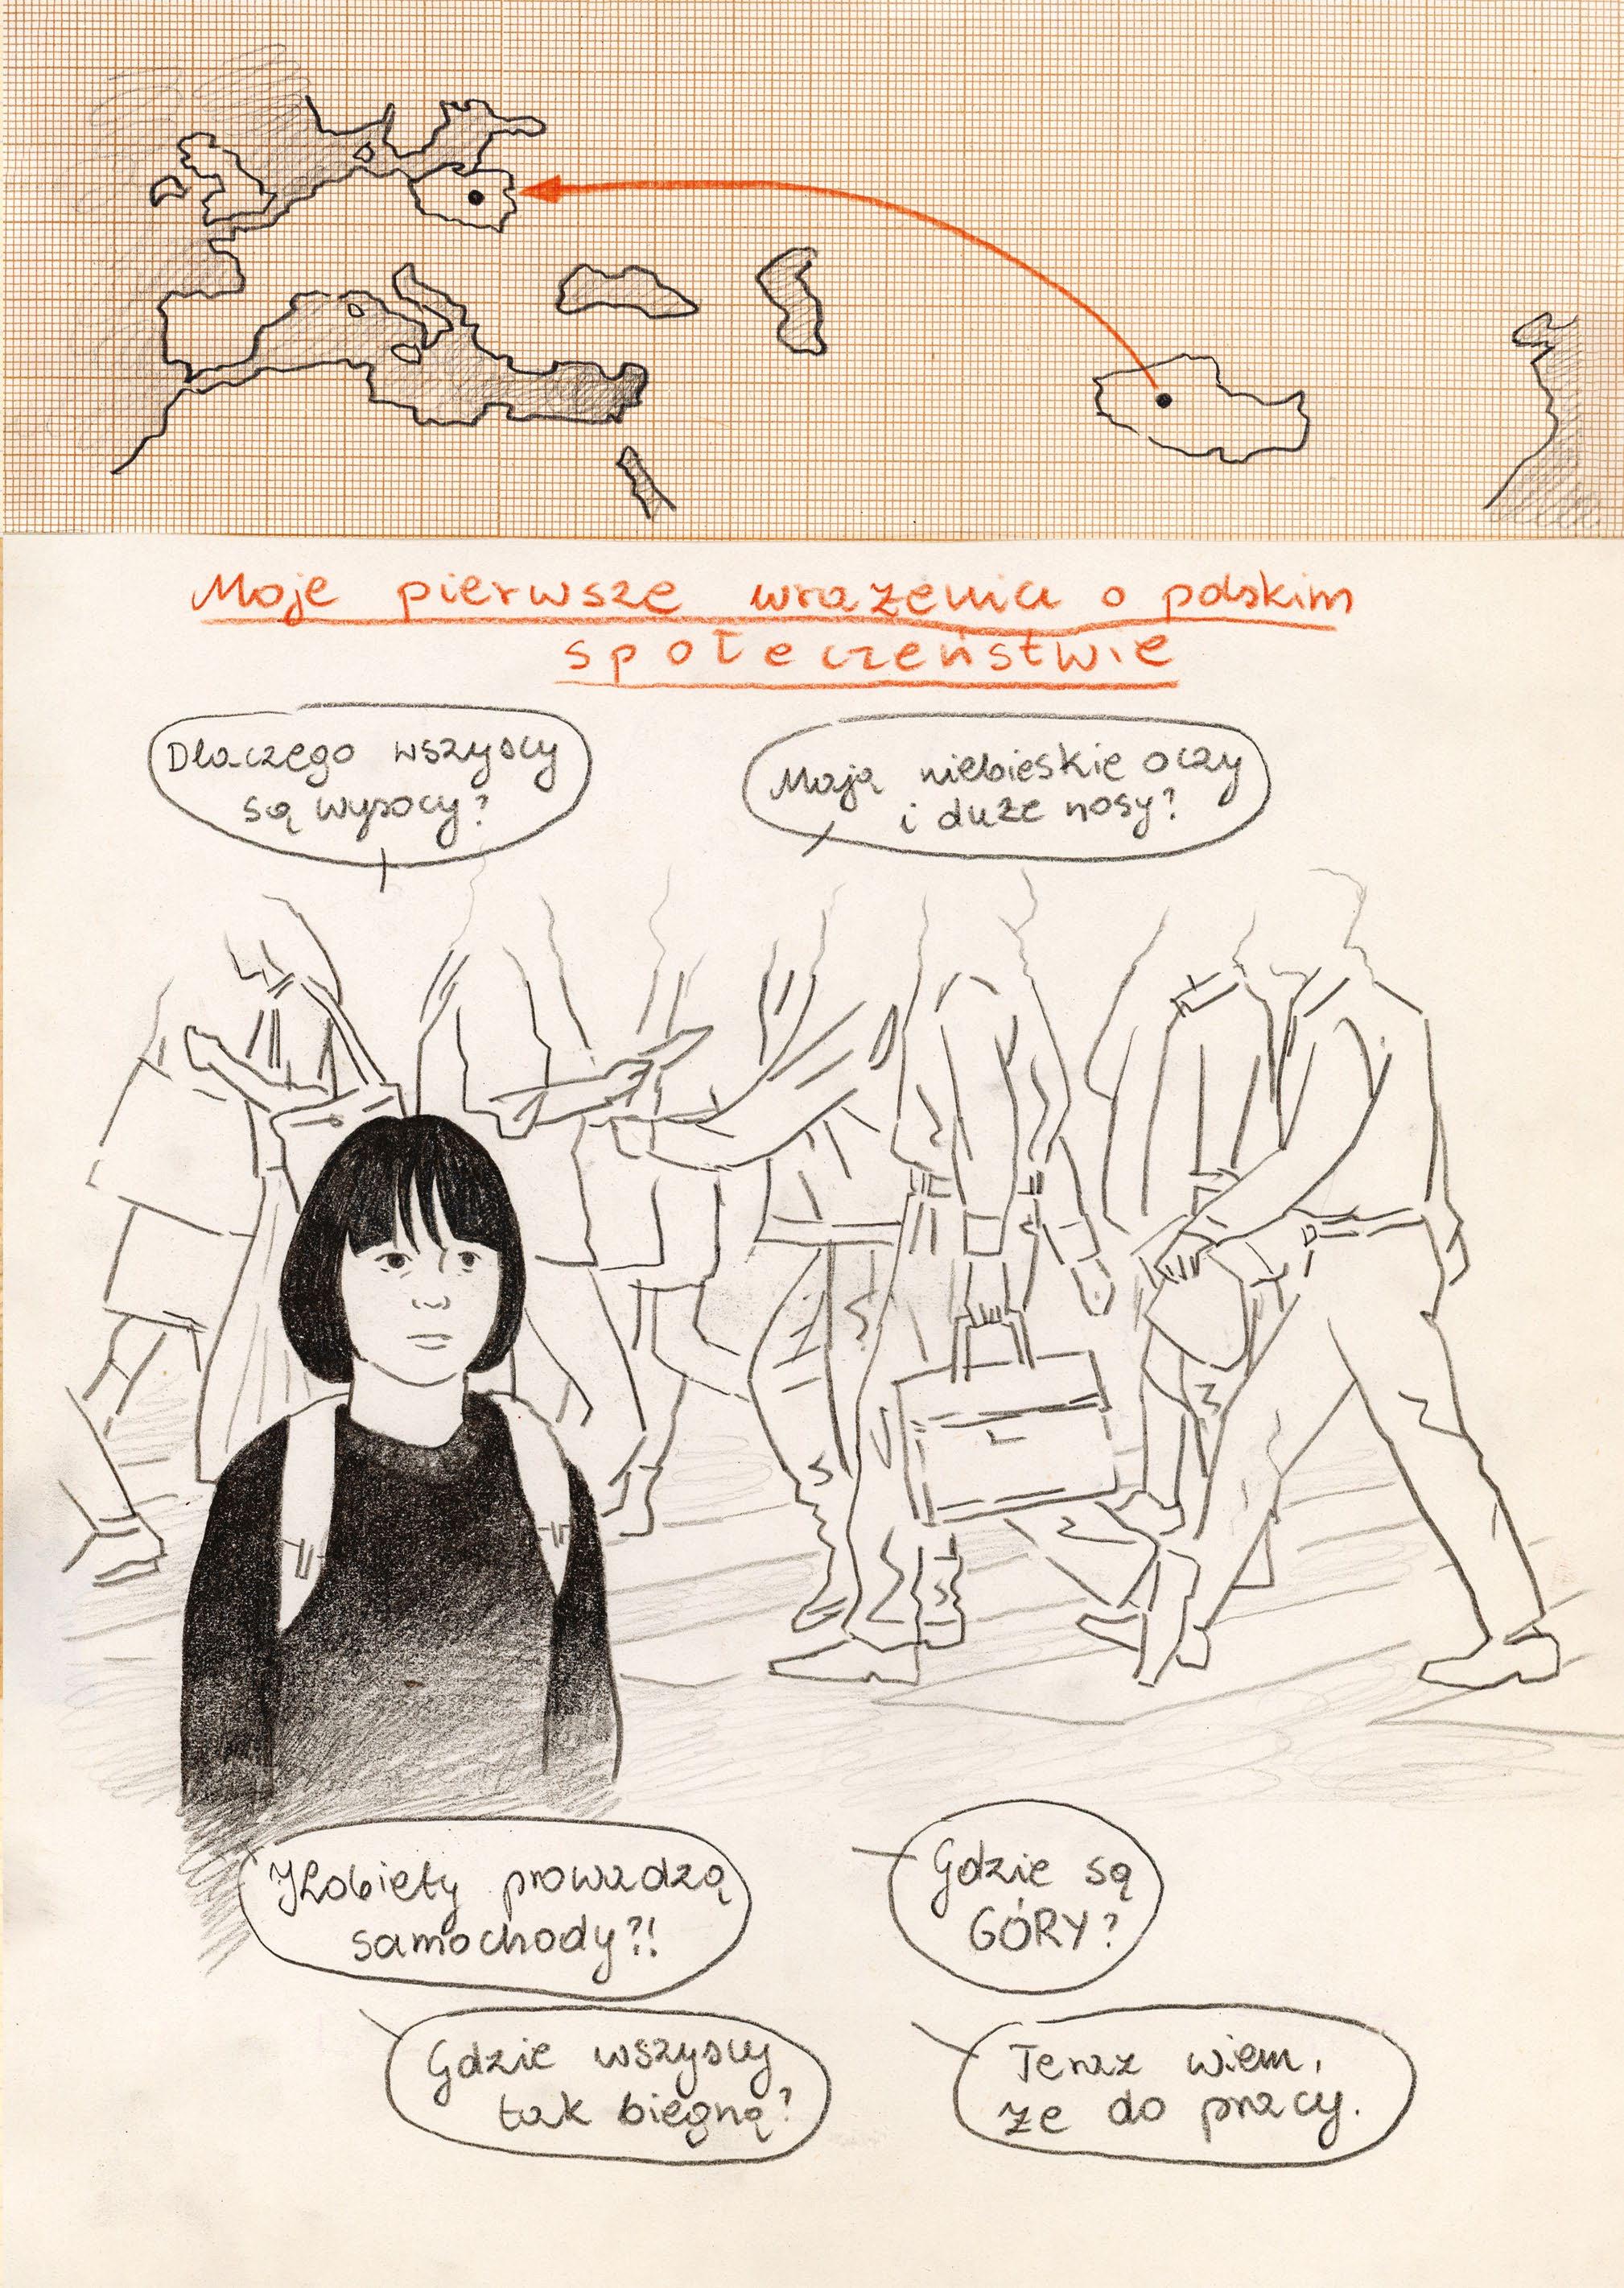 Moje pierwsze wrażenia o polskim
społeczeństwie
Dlaczego wszyscy
są wysocy?
Mają niebieskie oczy
i duże nosy?
Kobiety prowadzą
samochody?!
Gdzie są
GÓRY?
Gdzie wszyscy
tak biegną?
Teraz wiem,
że do pracy.